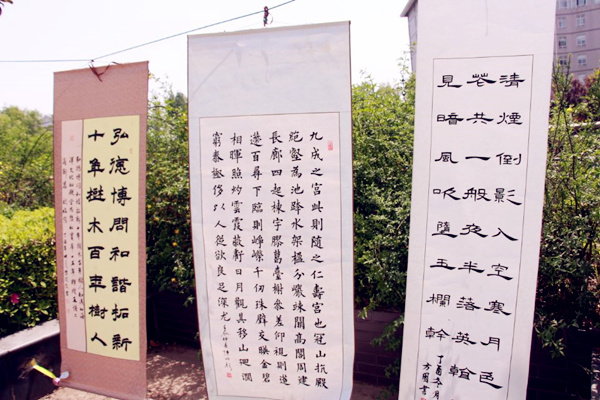 弘德博問和諧拓新
十年樹木百年樹人
九成之宮此則隨之仁壽宮也冠山抗殿
絕壑為池跨水架楹分巖竦闕高閣周建
長廊四起棟宇膠葛臺榭參差仰視則迢
遰百尋下臨則崢嶸千仞珠璧交暎金碧
相暉照灼雲霞蔽虧日月觀其移山迴澗
窮泰極侈以人從欲良足深尤
清煙倒影入空寒月色
花共一般夜半落英誰
見暗風吹墮玉欄幹
丁酉冬月